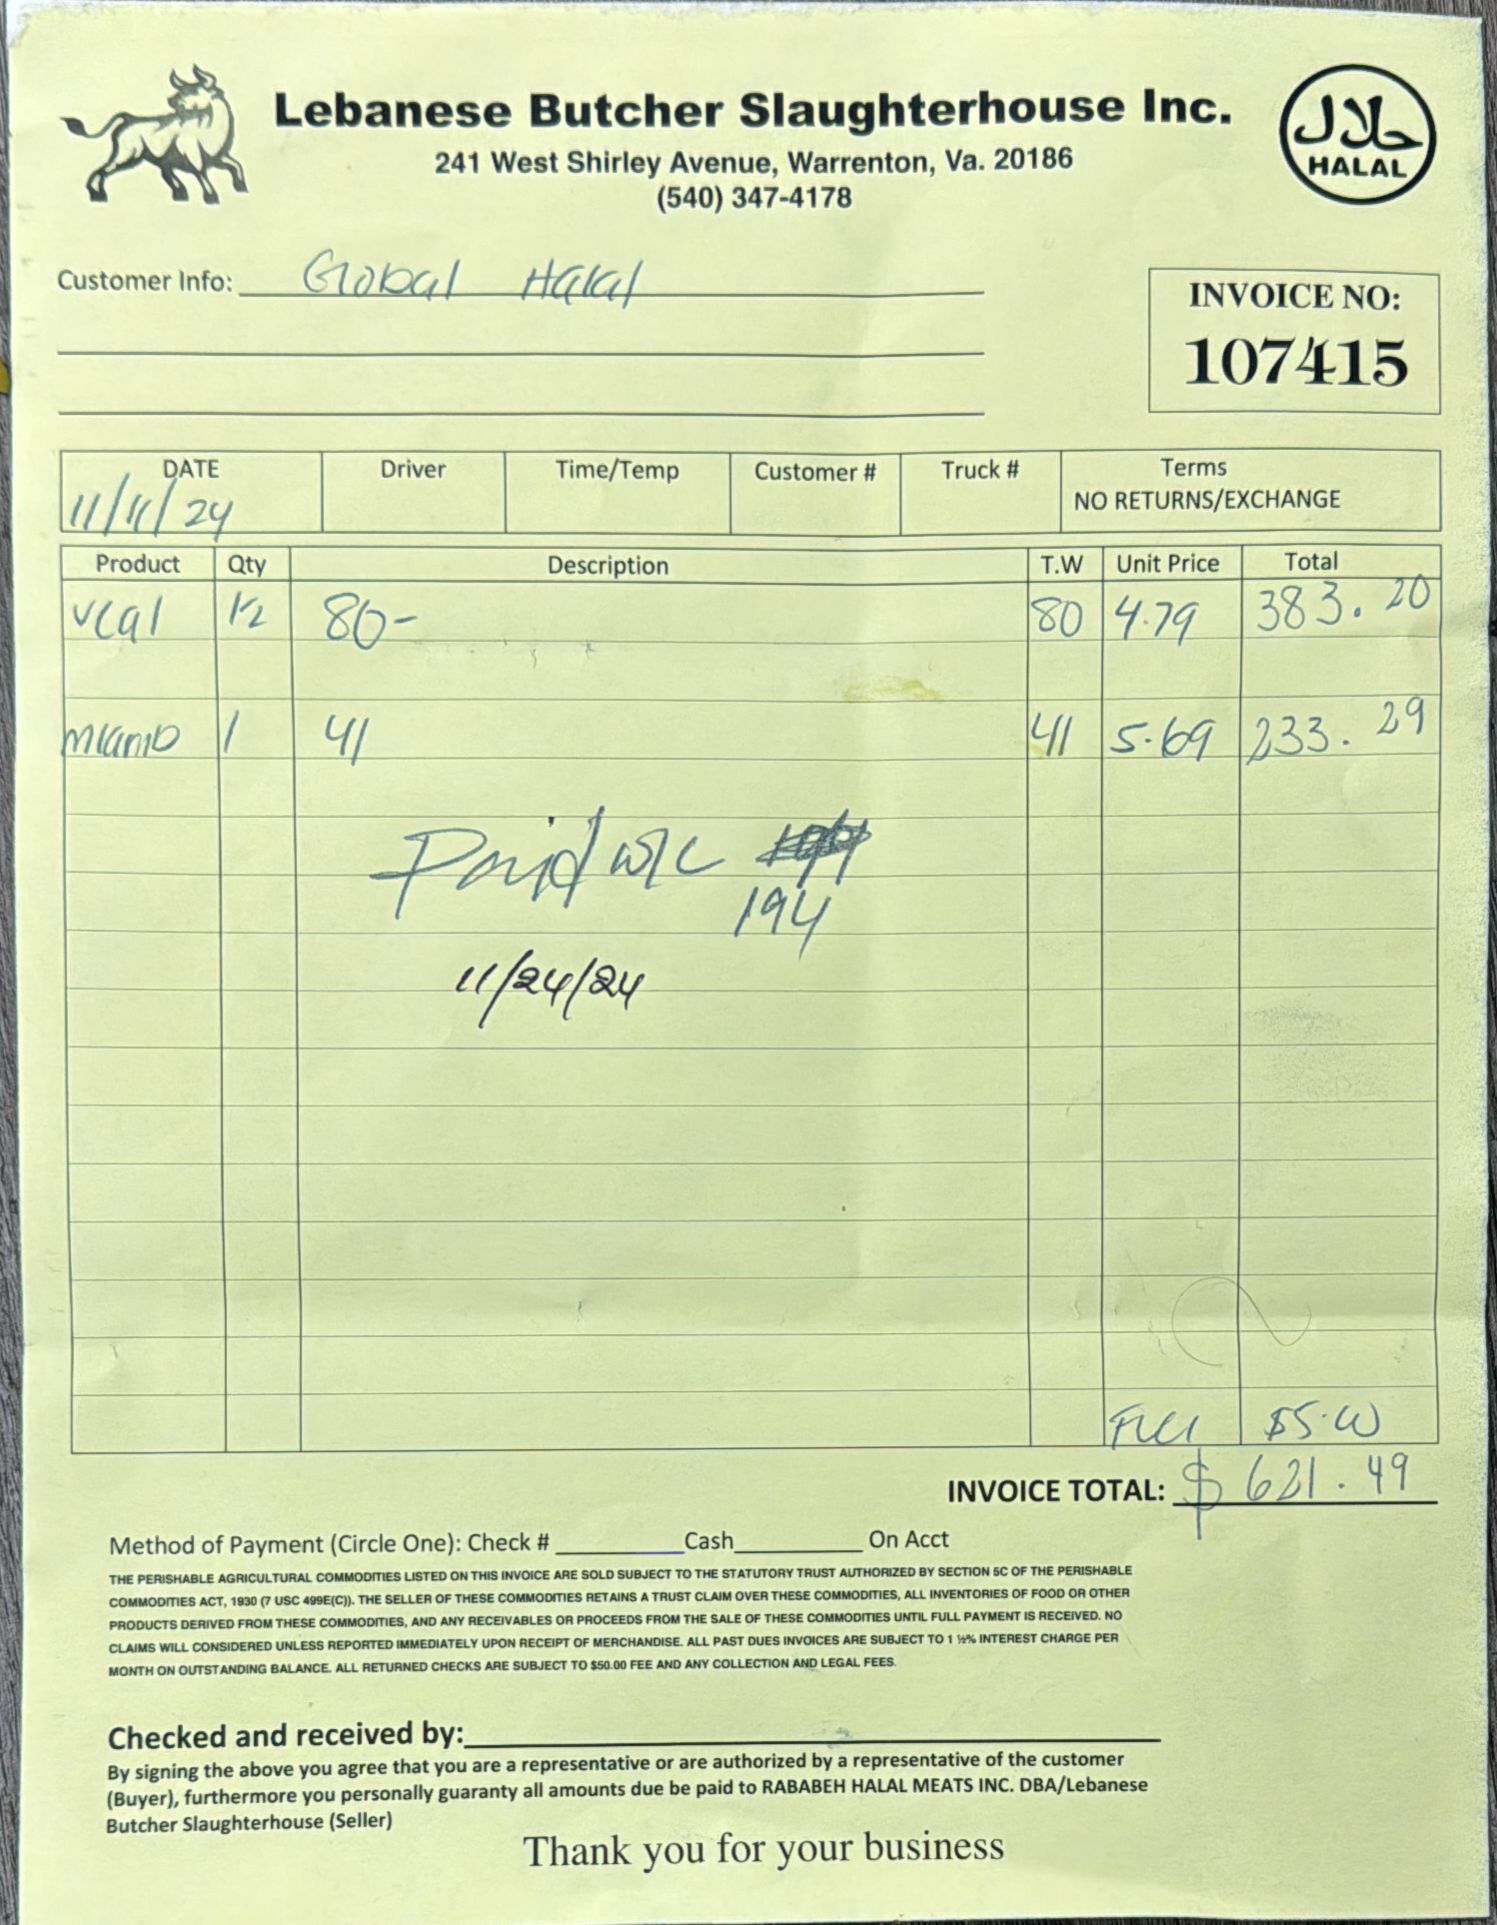 Lebanese Butcher Slaughterhouse Inc.
241 West Shirley Avenue, Warrenton, Va. 20186
(540) 347-4178
حلال
HALAL
Customer Info: Global Halal
INVOICE NO:
107415
DATE Driver Time/Temp Customer # Truck # Terms
11/11/24 NO RETURNS/EXCHANGE
Product Qty Description T.W Unit Price Total
veal 1/2 80- 80 4.79 383.20
1 41 41 5.69 233.29
Paid
194
11/24/24
$5.00
INVOICE TOTAL: $621.49
Method of Payment (Circle One): Check # Cash On Acct
THE PERISHABLE AGRICULTURAL COMMODITIES LISTED ON THIS INVOICE ARE SOLD SUBJECT TO THE STATUTORY TRUST AUTHORIZED BY SECTION 5C OF THE PERISHABLE
COMMODITIES ACT, 1930 (7 USC 499E(C)). THE SELLER OF THESE COMMODITIES RETAINS A TRUST CLAIM OVER THESE COMMODITIES, ALL INVENTORIES OF FOOD OR OTHER
PRODUCTS DERIVED FROM THESE COMMODITIES, AND ANY RECEIVABLES OR PROCEEDS FROM THE SALE OF THESE COMMODITIES UNTIL FULL PAYMENT IS RECEIVED. NO
CLAIMS WILL CONSIDERED UNLESS REPORTED IMMEDIATELY UPON RECEIPT OF MERCHANDISE. ALL PAST DUES INVOICES ARE SUBJECT TO 1 ½% INTEREST CHARGE PER
MONTH ON OUTSTANDING BALANCE. ALL RETURNED CHECKS ARE SUBJECT TO $50.00 FEE AND ANY COLLECTION AND LEGAL FEES.
Checked and received by:
By signing the above you agree that you are a representative or are authorized by a representative of the customer
(Buyer), furthermore you personally guaranty all amounts due be paid to RABABEH HALAL MEATS INC. DBA/Lebanese
Butcher Slaughterhouse (Seller)
Thank you for your business